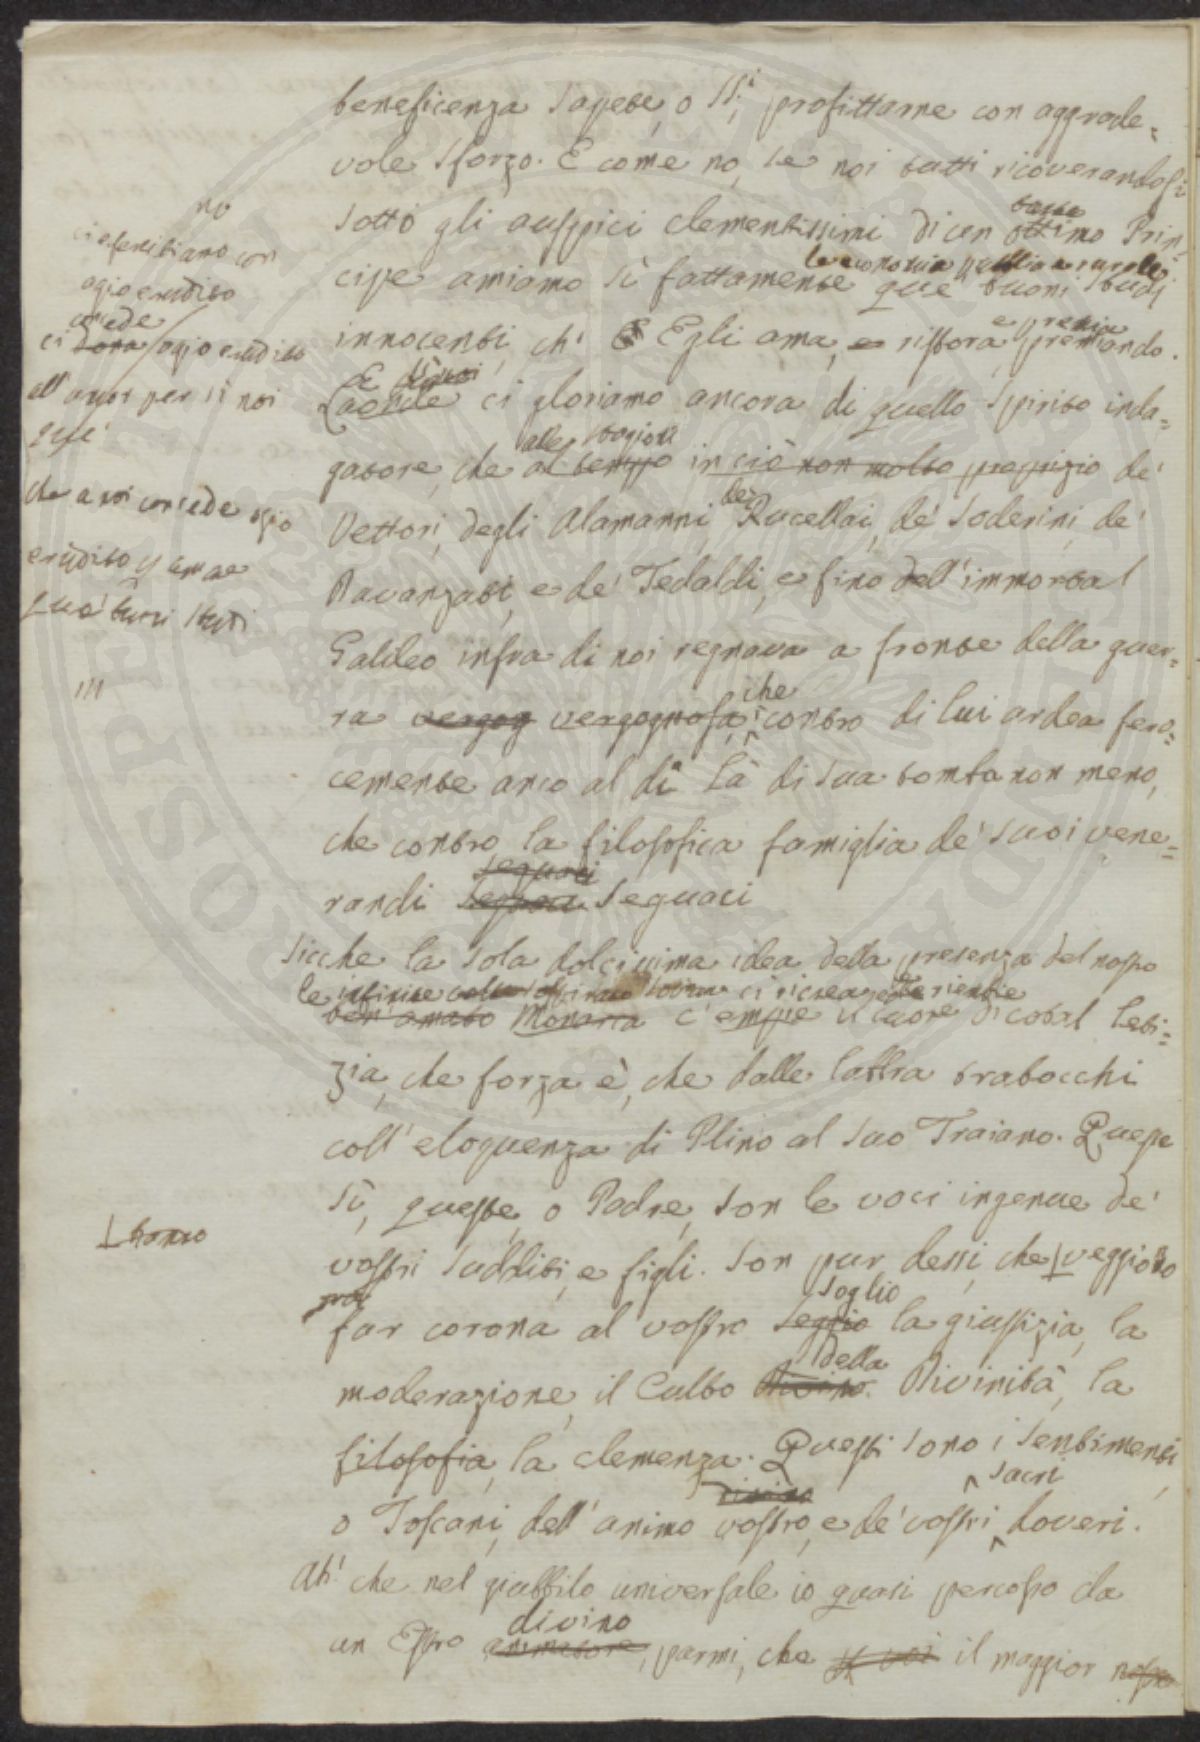 beneficenza sapete, o SS.i, profittarne con aggrade=
vole sforzo. E come no, se noi tutti ricoverandosi
sotto gli auspici clementissimi di un ottimo Prin=
cipe amiamo sì fattamente que' buoni studj
innocenti, ch' Egli ama, e ristora e premia premiando.
E
Laonde ci gloriamo ancora di quello spirito inda=
alle stagioni
gatore, che al tempo in ciò non molto propizio de'
Vettori, degli Alamanni, de' Rucellai, de' Soderini, de'
Davanzati, e de' Tedaldi, e fino dell'immortal
Galileo infra di noi regnava a fronte della guer=
ra vergog vergognosa, che contro di lui ardea fero=
cemente anco al di là di sua tomba non meno,
che contro la filosofica famiglia de' suoi vene=
seguaci
randi seguaci
Sicche la sola dolcissima idea della presenza del nostro
ben'amato Monarca c'empie il cuore di cotal leti=
zia, che forza è, che dalle labbra trabocchi
coll'eloquenza di Plinio al suo Traiano. Queste
sì, queste, o Padre, son le voci ingenue de'
vostri sudditi, e figli. Son pur dessi, che veggiono
soglio
far corona al vostro seggio la giustizia, la
della
moderazione, il Culto Divino. Divinità, la
filosofia, la clemenza. Questi sono i sentimenti,
sacri
o Toscani, dell'animo vostro, e de' vostri doveri.
Ah! che nel giubbilo universale io quasi percosso da
divino
un Estro animatore, parmi, che il maggior nostro
no
ci esentiano con
agio erudito
concede
ci dona/agio erudito
all' amor per sì noi
que'
che a noi concede agio
erudito
que' buoni studi